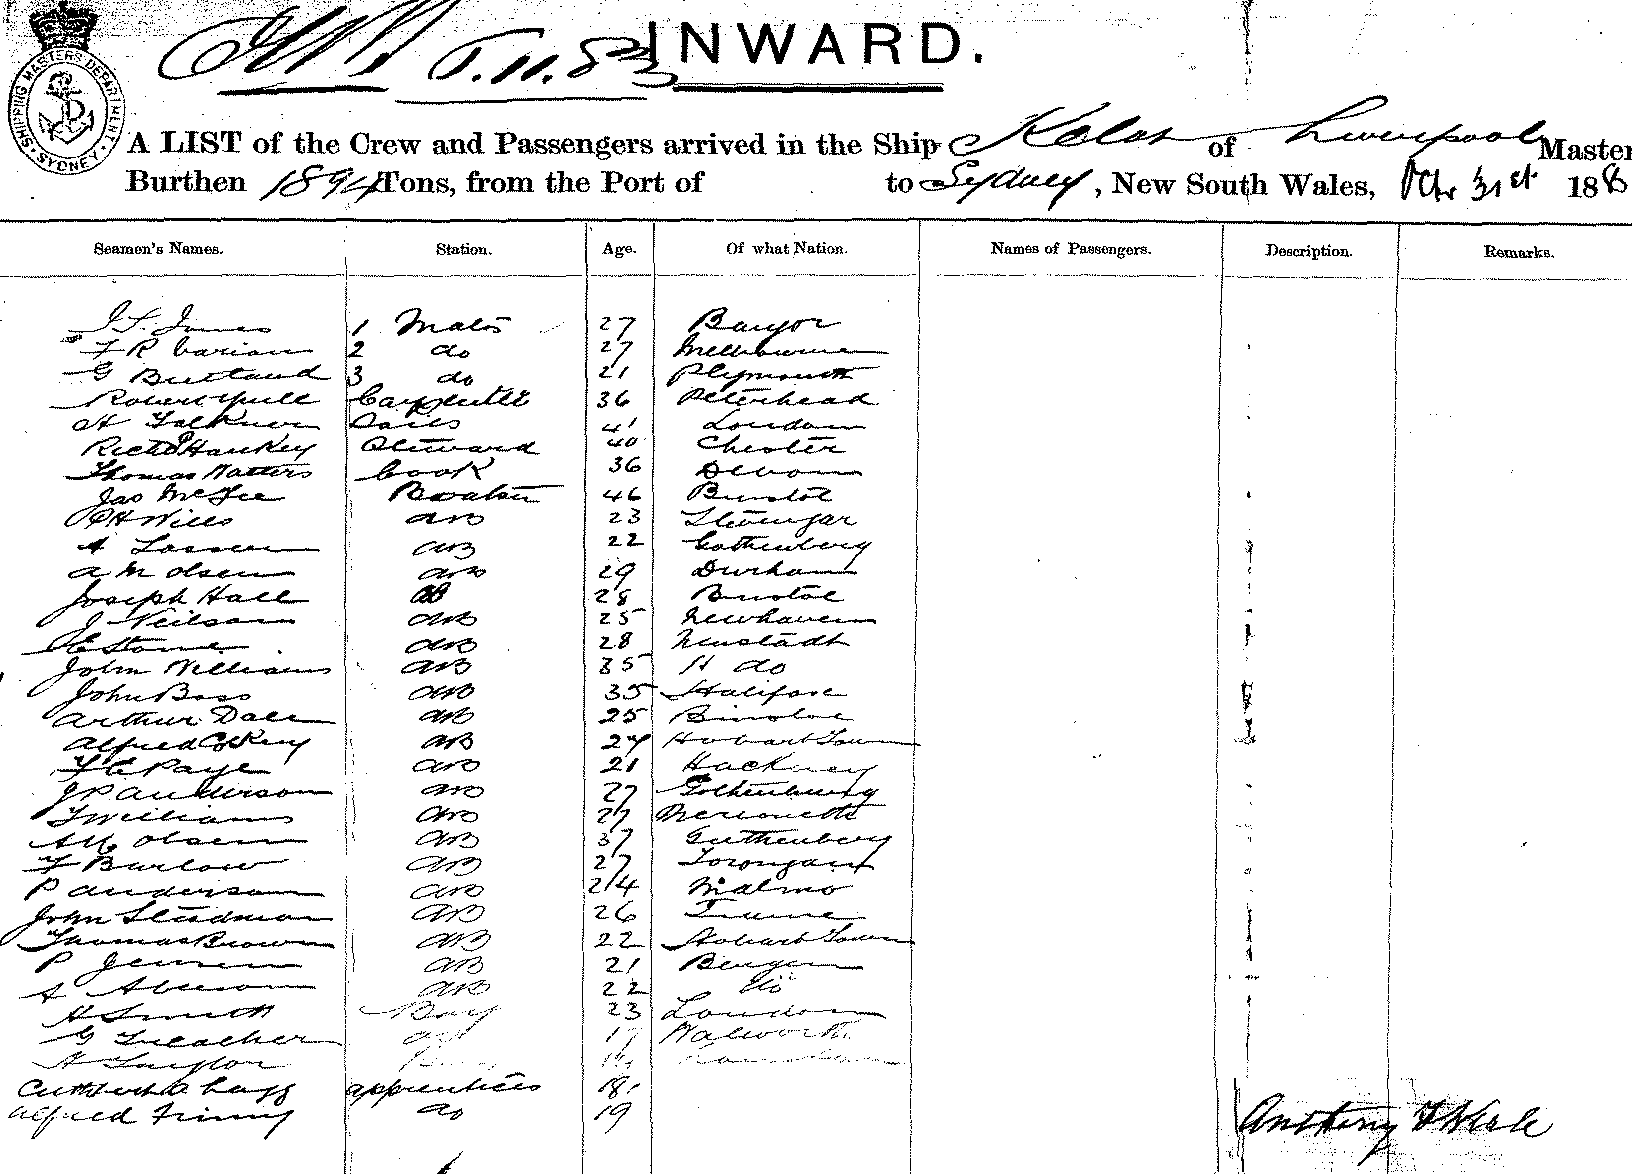 INWARD.
SHIPPING MASTERS DEPARTMENT SYDNEY
A LIST of the Crew and Passengers arrived in the Ship of Liverpool Master
Burthen 1894 Tons, from the Port of to Sydney, New South Wales, Octr 31st 188
Seamen's Names. Station. Age. Of what Nation. Names of Passengers. Description. Remarks.
Jones 1 Mate 27 Bangor
F R 2 do 27 Melbourne
G 3 do 21 Plymouth
Robert Yuill Carpenter 36 Peterhead
H Falkner Sails 41 London
Richd Hankey Steward 40 Chester
Thomas Watters Cook 36 Devon
Jas McGee 46 Bristol
Wills AB 23
A AB 22 Gothenberg
A M Olsen AB 29 Durham
Joseph Hall AB 28 Bristol
J Neilson AB 25 Newhaven
C Stone AB 28 Neustadt
John Williams AB 35 do
John Bass AB 35 Halifax
Arthur Dale AB 25 Bristol
Alfred AB 24 Hobart Town
F C Page AB 21 Hackney
J P Anderson AB 27 Gothenburg
Williams AB 27 Merioneth
Olsen AB 37 Guthenberg
F Barlow AB 27
P Anderson AB 24 Malmo
John Steadman AB 26 Fiume
Thomas Brown AB 22 Hobart Town
P Jensen AB 21 Bergen
A AB 22 do
H Smith Boy 23 London
G Treacher 17 Walworth
A Taylor
Cuthbert apprentices 18
Alfred Finney do 19
Anthony